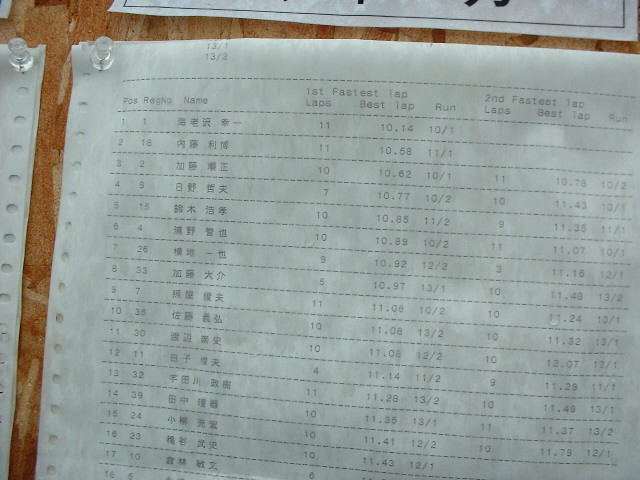 13/1
13/2
1st Fastest lap 2nd Fastest lap
Pos RegNo Name Laps Best lap Run Laps Best lap Run
1 1 海老沢 幸一 11 10.14 10/1
2 18 内藤 利博 11 10.58 11/1
3 2 加藤 順正 10 10.62 10/1 11 10.78 10/2
4 9 日野 哲夫 7 10.77 10/2 10 11.43 10/1
5 15 鈴木 浩孝 10 10.85 11/2 9 11.35 11/1
6 4 浦野 也 10 10.89 10/2 11 11.07 10/1
7 26 横地 一也 9 10.92 12/2 3 11.16 12/1
8 33 加藤 大介 5 10.97 13/1 10 11.48 13/2
9 7 俊夫 11 11.06 10/2 10 11.24 10/1
10 35 佐藤 義弘 10 11.08 13/2 10 11.32 13/1
11 30 渡辺 崇史 10 11.08 12/2 10 12.07 13/1
12 11 白子 俊夫 4 11.14 11/2 9 11.29 11/1
13 32 宇田川 政樹 11 11.28 13/2 10 11.49 13/1
14 39 田中 10 11.35 13/1 11 11.37 13/2
15 24 小柳 10 11.41 12/2 10 11.79 12/1
16 23 武史 10 11.43 12/1
17 10 倉林 敏文 6
18 5